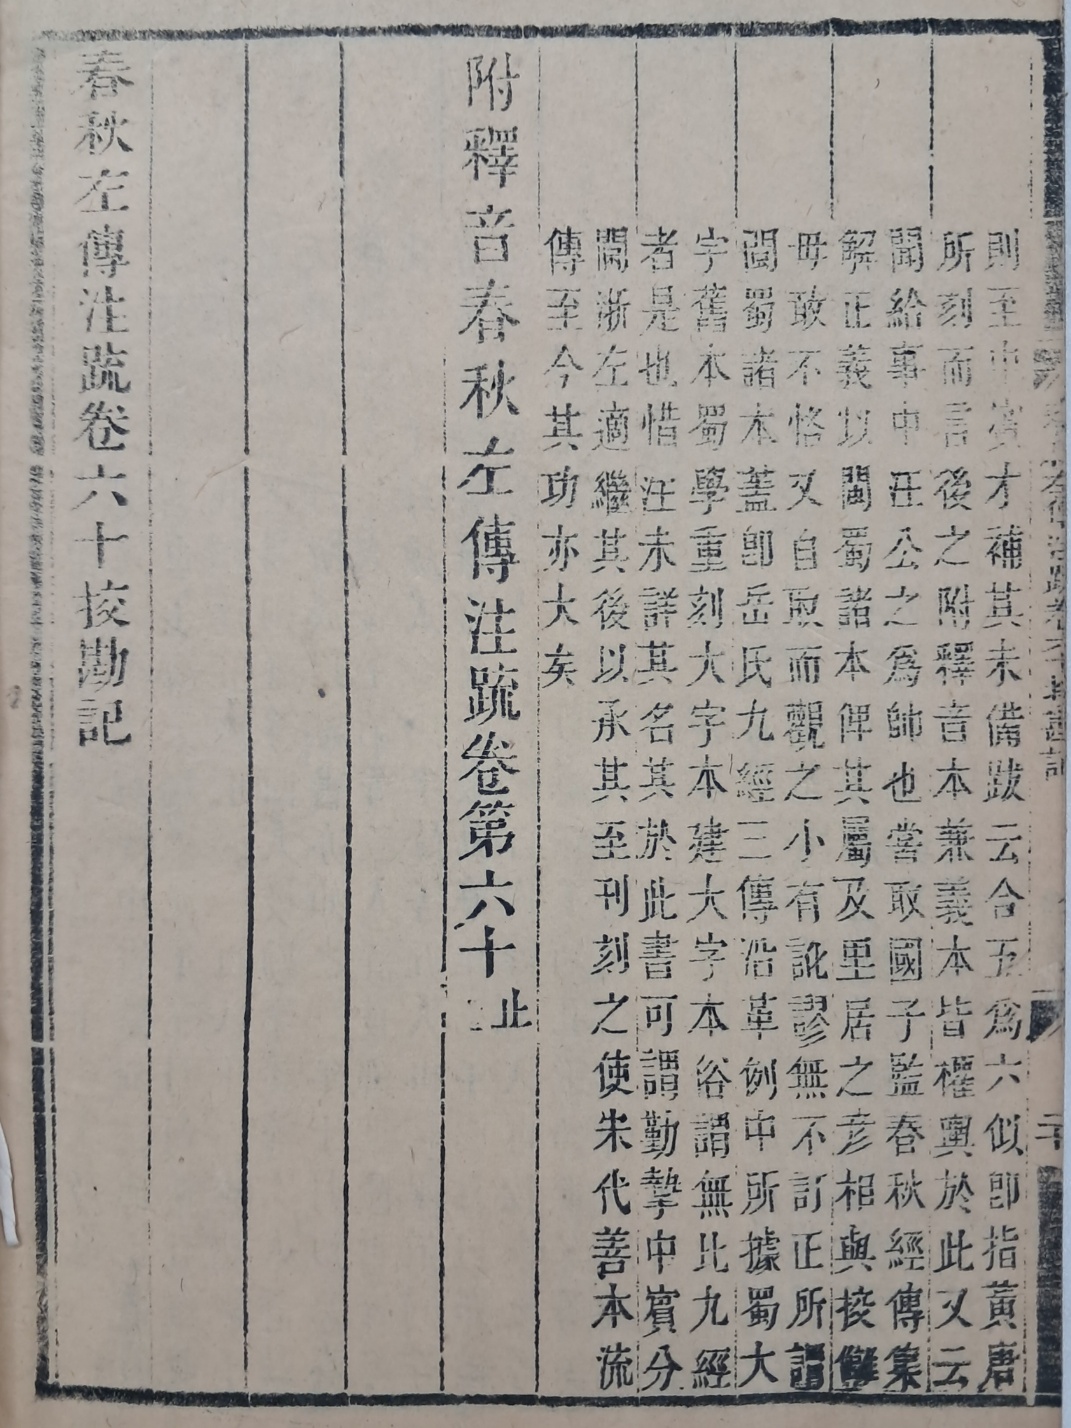 則至中賔才補其未備跋云合五爲六似卽指黃唐
所刻而言後之附釋音本兼義本皆權輿於此又云
聞給事中汪公之爲帥也嘗取國子監春秋經傳集
解正義以閩蜀諸本俾其屬及里居之彥相與挍讐
毋敢不恪又自取而觀之小有訛謬無不訂正所謂
閩蜀諸本蓋卽岳氏九經三傳沿革例中所據蜀大
字舊本蜀學重刻大字本建大字本俗謂無比九經
者是也惜汪未詳其名其於此書可謂勤摯中賔分
閫浙左適繼其後以承其至刊刻之使朱代善本流
傳至今其功亦大矣
附釋音春秋左傳注疏卷第六十止
春秋左傳注疏卷六十挍勘記